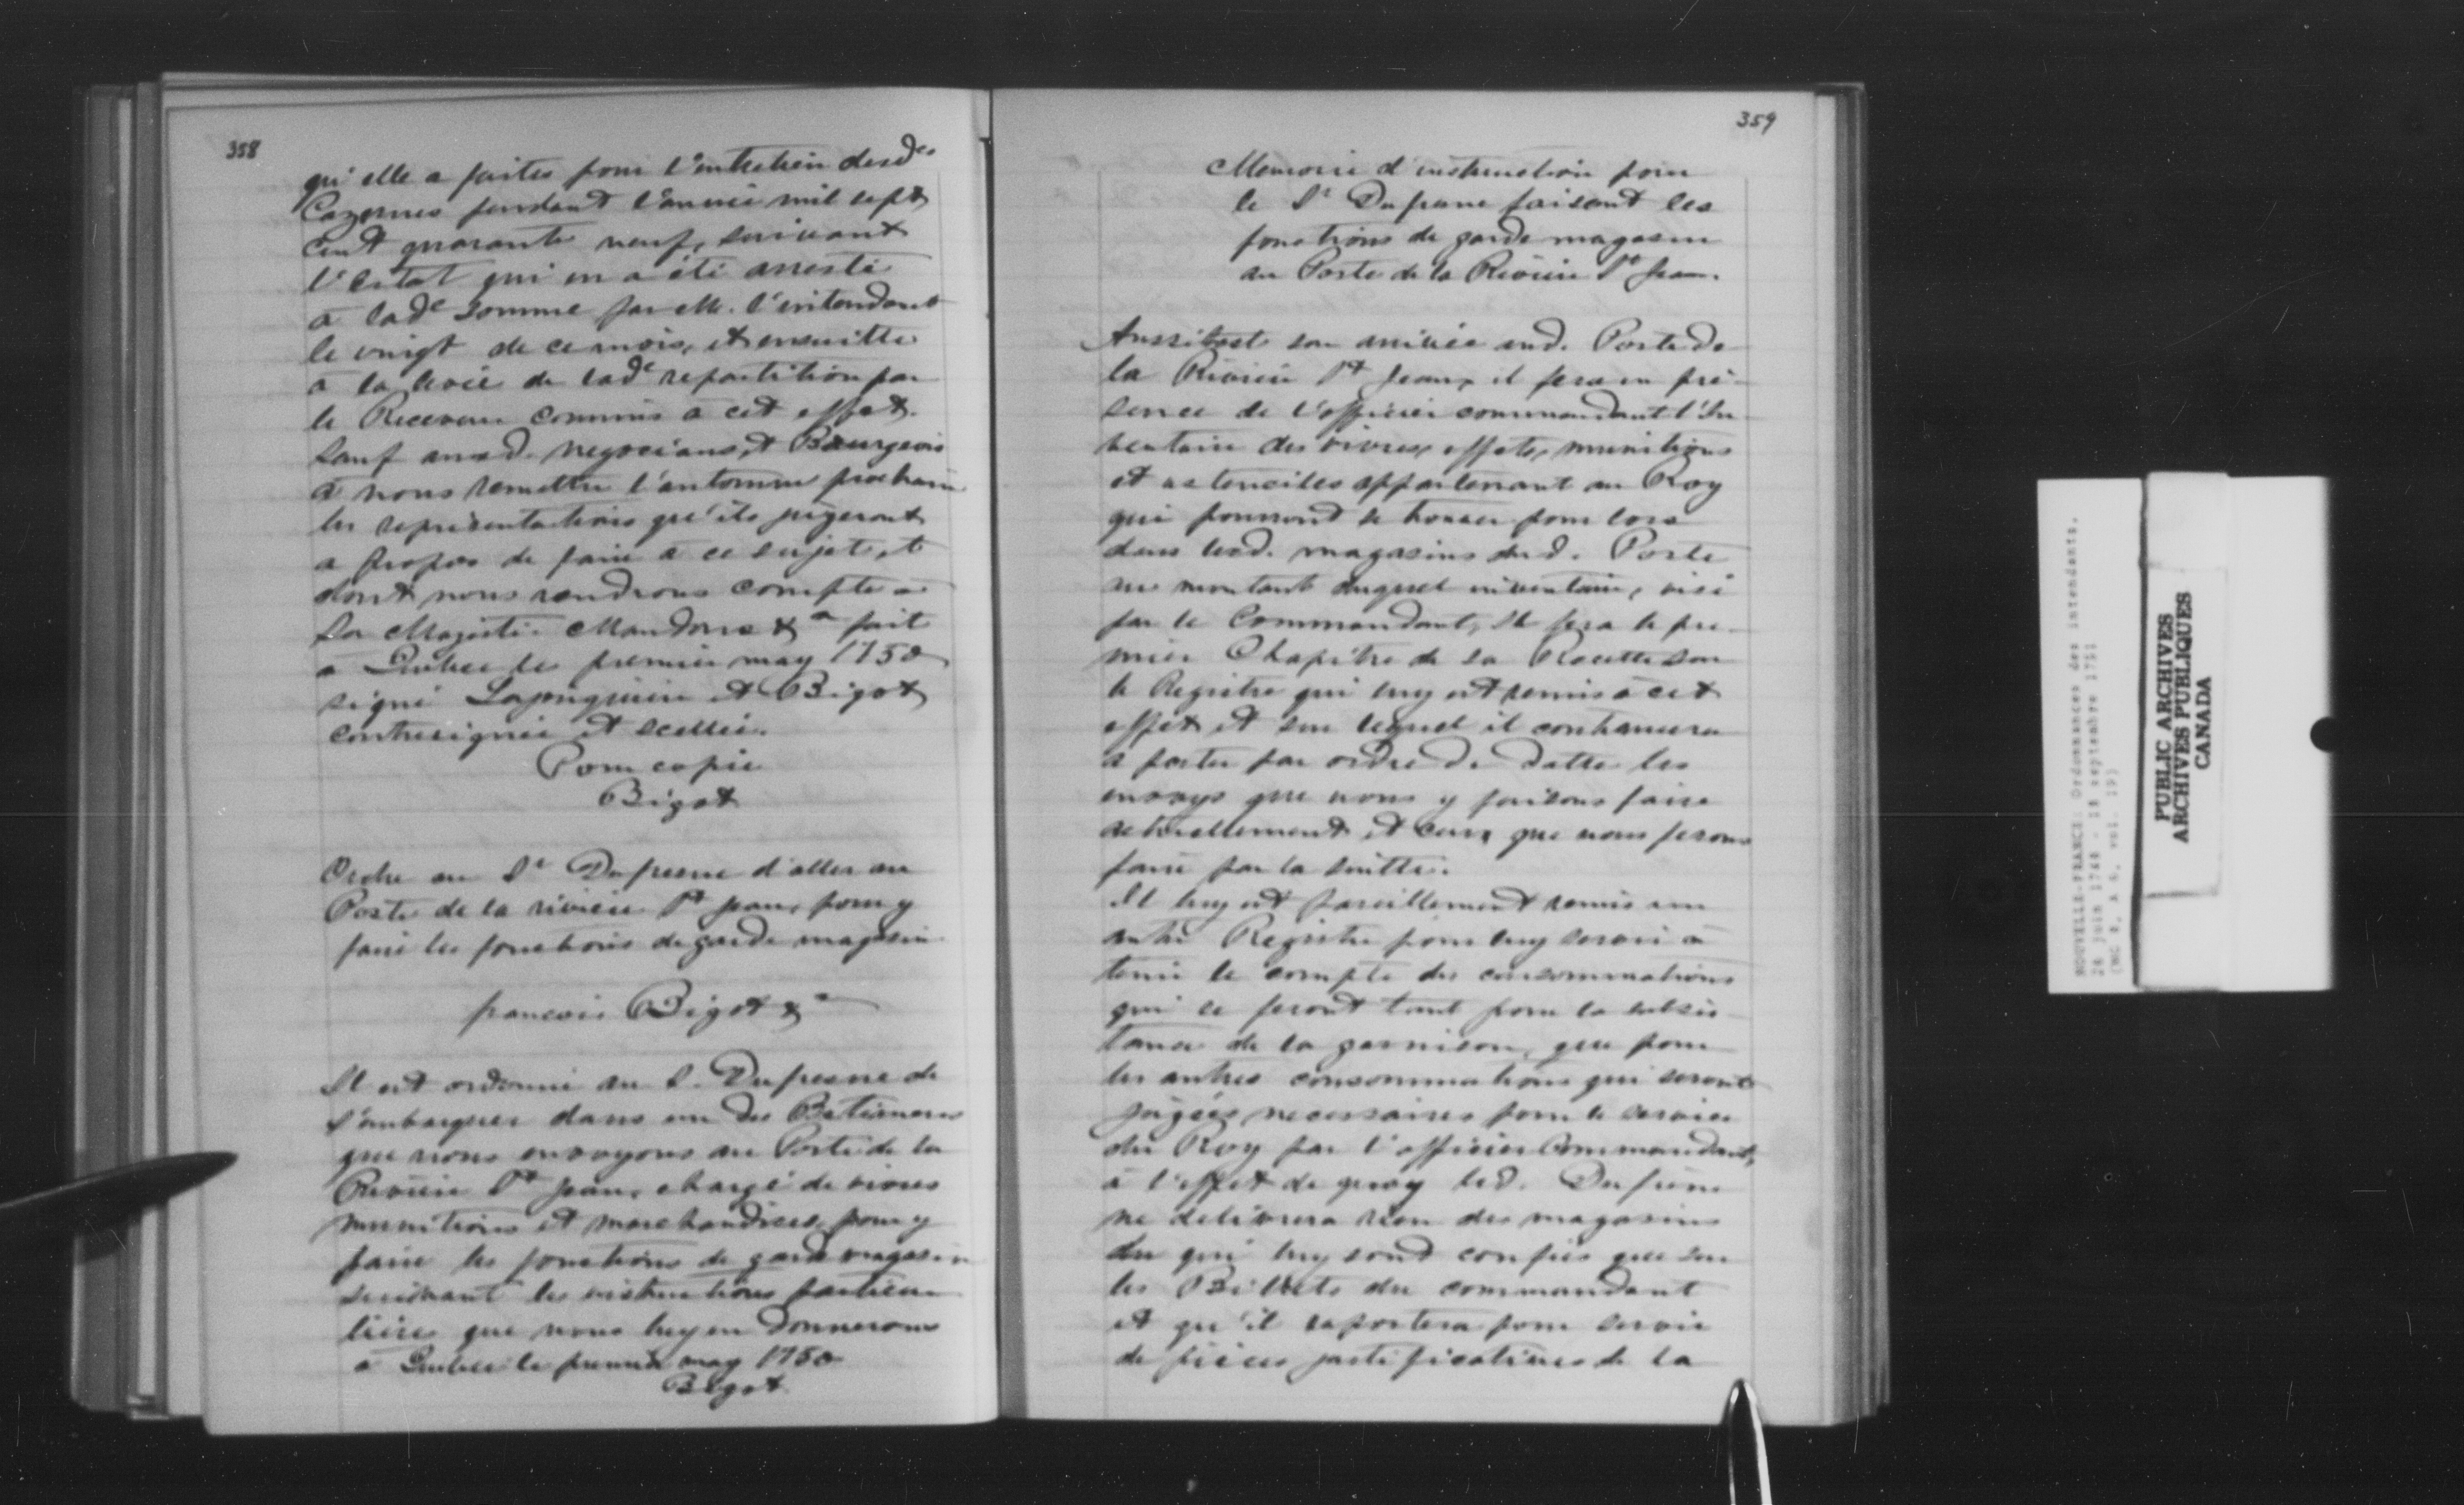 358
qu'elle a faites pour l'entretien desd.es
Cazernes pendant l'année mil sept
cent quarante neuf, suivant
l'Estat qui en a été arresté
a lad.e somme par M. l'intendant
le vingt de ce mois, et ensuitte
a la levée de lad.e repartition par
le Receveur commis a cet effet.
Sauf auxd. negocians et Bourgeois
a nous remettre l'automne prochain
les representations qu'ils jugeront
a propos de faire a ce sujet, et
dont nous rendrons compte a
Sa Majesté. Mandons &a fait
a Quebec le premier may 1750
signé Lajonquiere et Bigot
contresignée et scellée.
Pour copie
Bigot
Ordre au Sr Dufresne d'aller au
Poste de la riviere St Jean, pour y
faire les fonctions de garde magasin
francois Bigot &a
Il est ordonné au S. Dufresne de
s'embarquer dans un des Batimens
que nous envoyons au Poste de la
Riviere St Jean, chargé de vivres
munitions et marchandises, pour y
faire les fonctions de garde magasin
suivant les instructions particu
lieres que nous luy en donnerons
a Quebec le premier may 1750
Bigot
359
Memoire d'instruction pour
le Sr Dufresne faisant les
fonctions de garde magasin
au Poste de la Riviere St Jean.
Aussitost son arrivée aud. Poste de
la Riviere St Jean, il fera en pré-
sence de l'officier commandant l'In-
ventaire des vivres, effets, munitions
et ustenciles appartenant au Roy
qui pourront se trouver pour lors
dans lesd. magasins dud. Poste
au montant duquel inventaire, visé
par le Commandant, Il fera le pre-
mier Chapitre de sa Recette sur
le Registre qui luy est remis a cet
effet et sur lequel il continuera
a porter par ordre de datte les
envoys que nous y faisons faire
actuellement et ceux que nous ferons
faire par la suitte.
Il luy est pareillement remis un
autre Registre pour luy servir a
tenir le compte des consommations
qui se feront tant pour la subsis-
tance de la garnison, que pour
les autres consommations qui seront
jugées necessaires pour le service
du Roy par l'officier Commandant,
a l'effet de quoy led. Dufresne
ne delivrera rien des magasins
du qui luy sont confiés que sur
les Billets du commandant
et qu'il raportera pour servir
de pieces justificatives de la
NOUVELLE-FRANCE: Ordonnances des intendants.
PUBLIC ARCHIVES
ARCHIVES PUBLIQUES
CANADA